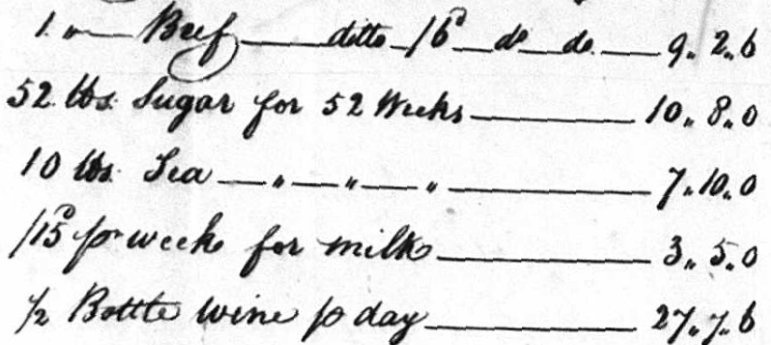 1 „ — Beef — ditto /6d do do — 9„ 2„ 6
52 lbs Sugar for 52 Weeks — 10„ 8„ 0
10 lbs Tea — „ — „ — „ — 7„ 10„ 0
/15d pr week for milk — 3„ 5„ 0
1/2 Bottle wine pr day — 27„ 7„ 6